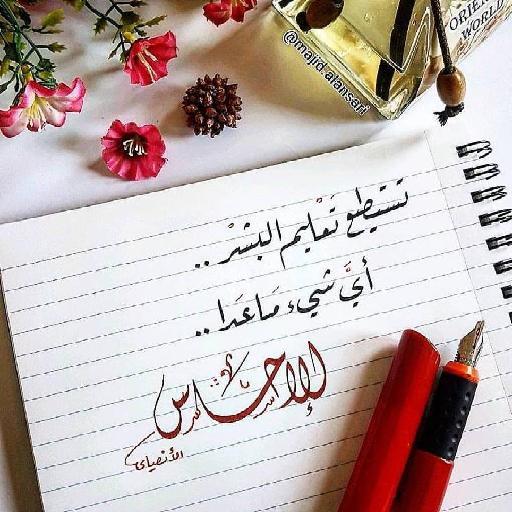 @majid alansari
ORIEN
WORL
تستطيع تَعْليم البشرْ ..
أيَّ شيء مَاعَدا ..
الإحسَاس
الأنصاري